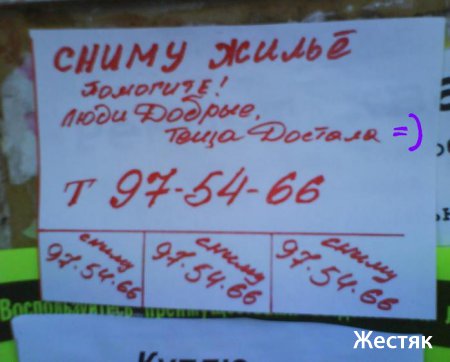 СНИМУ ЖИЛЬЁ
Помогите!
Люди Добрые,
Теща Достала =)
Т 97-54-66
сниму
97.54.66
сниму
97.54.66
сниму
97.54.66
Воспользуйтесь
Куплю
Жестяк